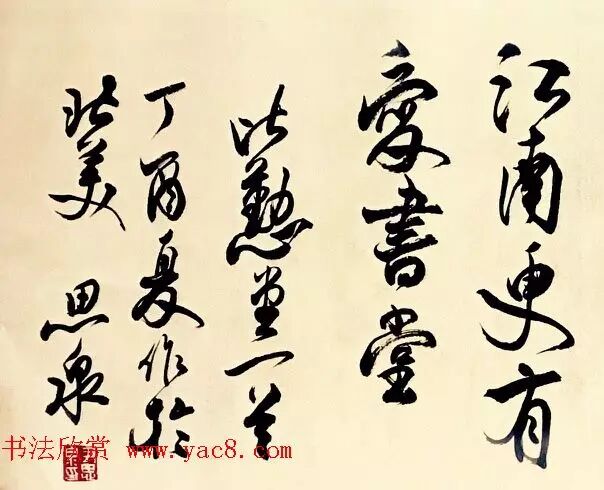 江南更有
愛書堂
懃堂一首
丁酉夏作於
北美 思泉
书法欣赏 www.yac8.com